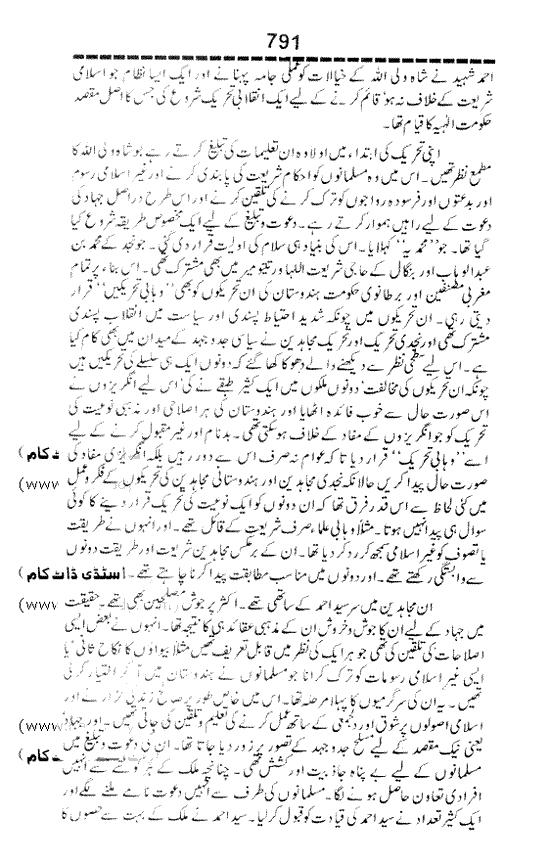 791
احمد شہید نے شاہ ولی اللہ کے خیالات کو عملی جامہ پہنانے اور ایک ایسا نظام جو اسلامی
شریعت کے خلاف نہ ہو‘ قائم کرنے کے لیے ایک انقلابی تحریک شروع کی جس کا اصل مقصد
حکومت الٰہیہ کا قیام تھا۔
اپنی تحریک کی ابتداء میں اولاً وہ ان تعلیمات کی تبلیغ کرتے رہے جو شاہ ولی اللہ کا
مطمع نظر تھیں۔ اس میں وہ مسلمانوں کو احکام شریعت کی پابندی کرنے اور غیر اسلامی رسوم
اور بدعتوں اور فرسودہ رواجوں کو ترک کرنے کی تلقین کرتے اور اس طرح دراصل جہاد کی
دعوت کے لیے راہیں ہموار کرتے رہے۔ دعوت و تبلیغ کے لیے ایک مخصوص طریقہ شروع کیا
گیا تھا۔ جو ’’محمدیہ‘‘ کہلایا۔ اس کی بنیاد ہی سلام کی اولیت قرار دی گئی۔ جو نجد کے محمد بن
عبدالوہاب اور بنگال کے حاجی شریعت اللہ اور تیتو میر میں بھی مشترک تھی۔ اس بناء پر تمام
مغربی مصنفین اور برطانوی حکومت ہندوستان کی ان تحریکوں کو بھی ’’وہابی تحریکیں‘‘ قرار
دیتی رہی۔ ان تحریکوں میں چونکہ شدید احتیاط پسندی اور سیاست میں انقلاب پسندی
مشترک تھی اور نجدی تحریک اور تحریک مجاہدین نے سیاسی جدوجہد کے میدان میں بھی کام کیا
ہے۔ اس لیے سطحی نظر سے دیکھنے والے دھوکا کھا گئے کہ دونوں ایک ہی سلسلے کی تحریکیں ہیں
چونکہ ان تحریکوں کی مخالفت‘ دونوں ملکوں میں ایک کثیر طبقے نے کی‘ اس لیے انگریزوں نے
اس صورت حال سے خوب فائدہ اٹھایا اور ہندوستان کی ہر اصلاحی اور مذہبی نوعیت کی
تحریک کو جو انگریزوں کے مفاد کے خلاف ہو سکتی تھی۔ بدنام اور غیر مقبول کرنے کے لیے
اسے ’’وہابی تحریک‘‘ قرار دیا تاکہ عوام نہ صرف اس سے دور رہیں بلکہ انگریزی مفاد کی
صورت حال پیدا کریں حالانکہ نجدی مجاہدین اور ہندوستانی مجاہدین کی تحریکوں کے فکر و عمل
میں کئی لحاظ سے اس قدر فرق تھا کہ ان دونوں کو ایک نوعیت کی تحریک قرار دینے کا کوئی
سوال ہی پیدا نہیں ہوتا۔ مثلاً وہابی علماء صرف شریعت کے قائل تھے۔ اور انہوں نے طریقت
یا تصوف کو غیر اسلامی سمجھ کر رد کر دیا تھا۔ ان کے برعکس مجاہدین شریعت اور طریقت دونوں
سے وابستگی رکھتے تھے۔ اور دونوں میں مناسب مطابقت پیدا کرنا چاہتے تھے۔ اسٹڈی ڈاٹ کام )
ان مجاہدین میں سرسید احمد کے ساتھی تھے۔ اکثر پرجوش مصلحین بھی تھے۔ حقیقت (www
میں جہاد کے لیے ان کا جوش و خروش ان کے مذہبی عقائد ہی کا نتیجہ تھا۔ انہوں نے بعض ایسی
اصلاحات کی تلقین کی تھی جو ہر ایک کی نظر میں قابل تعریف تھیں مثلاً بیواؤں کا نکاح ثانی‘ یا
ایسی غیر اسلامی رسومات کو ترک کرانا جو مسلمانوں نے ہندوستان میں آ کر اختیار کر لی
تھیں۔ یہ ان کی سرگرمیوں کا پہلا مرحلہ تھا۔ اس میں خاص طور پر صالح زندگی گزارنے اور
اسلامی اصولوں پر شوق اور دلجمعی کے ساتھ عمل کرنے کی تعلیم و تلقین کی جاتی تھیں۔ اور جہاد (www
یعنی نیک مقصد کے لیے مسلح جدوجہد کے تصور پر زور دیا جاتا تھا۔ ان کی دعوت و تبلیغ میں
مسلمانوں کے لیے بے پناہ جاذبیت اور کشش تھی۔ چنانچہ ملک کے ہر گوشے سے انہیں
افرادی تعاون حاصل ہونے لگا۔ مسلمانوں کی طرف سے انہیں دعوت نامے ملنے لگے اور
ایک کثیر تعداد نے سید احمد کی قیادت کو قبول کر لیا۔ سید احمد نے ملک کے بہت سے حصوں کا